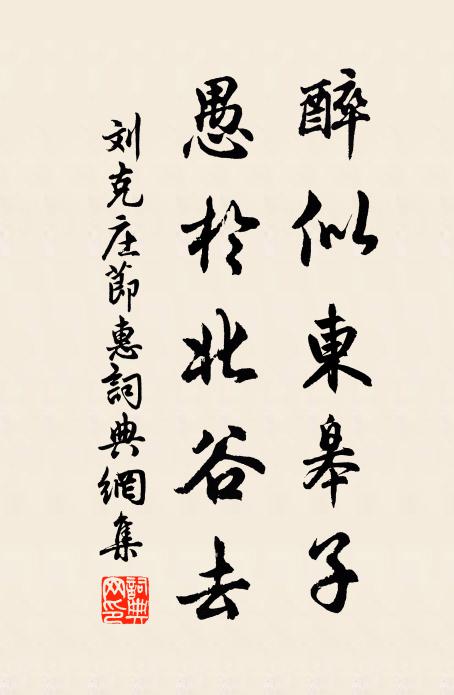 醉似東皋子
愚於北谷去
刘克庄節惠詞典網集
詞典网印